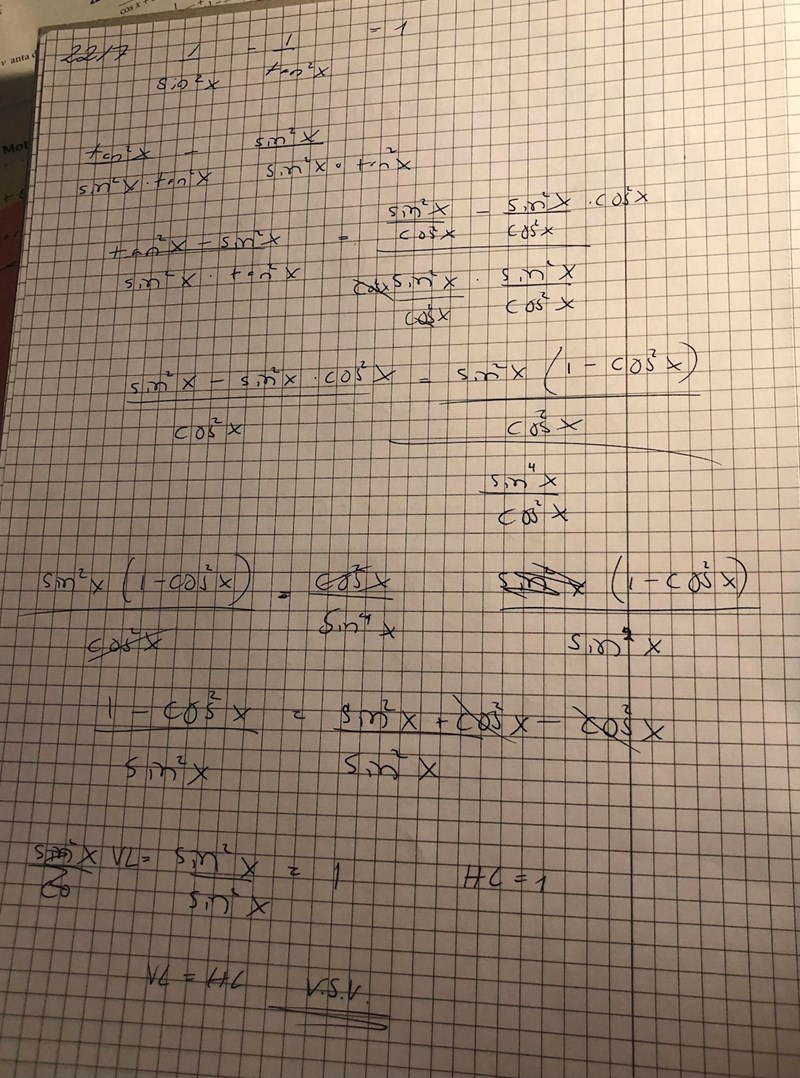 2217 1/sin²x - 1/tan²x = 1
tan²x/(sin²x · tan²x) - sin²x/(sin²x · tan²x)
(tan²x - sin²x)/(sin²x · tan²x) = (sin²x/cos²x - sin²x/cos²x · cos²x)/(sin²x · sin²x/cos²x)
(sin²x - sin²x · cos²x)/cos²x = (sin²x (1 - cos²x)/cos²x)/(sin⁴x/cos²x)
sin²x (1 - cos²x)/cos²x = cos²x/sin⁴x sin²x (1 - cos²x)/sin⁴x
(1 - cos²x)/sin²x = (sin²x + cos²x - cos²x)/sin²x
VL = sin²x/sin²x = 1 HL = 1
VL = HL V.S.V.